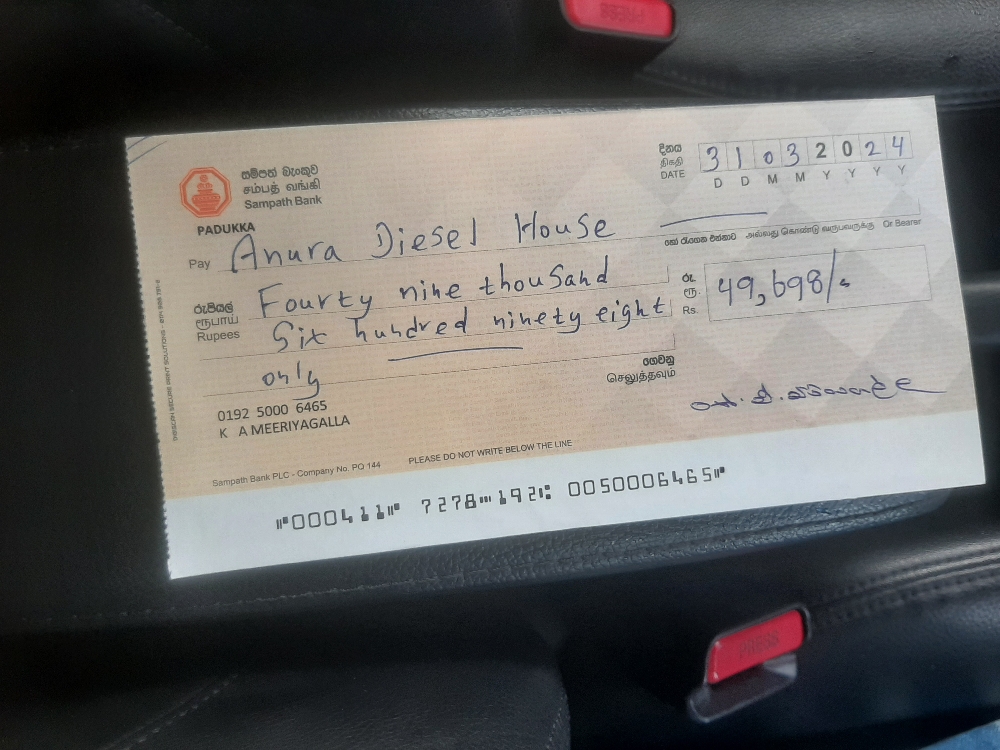 PRESS
සම්පත් බැංකුව
சம்பத் வங்கி
Sampath Bank
PADUKKA
දිනය
திகதி
DATE
3 1 0 3 2 0 2 4
D D M M Y Y Y Y
Pay Anura Diesel House
හෝ රැගෙන එන්නාට அல்லது கொண்டு வருபவருக்கு Or Bearer
රුපියල්
ரூபாய்
Rupees
Fourty nine thousand
Six hundred ninety eight
only
රු.
ரூ.
Rs.
49,698/-
ගෙවනු
செலுத்தவும்
0192 5000 6465
K A MEERIYAGALLA
Sampath Bank PLC - Company No. PQ 144
PLEASE DO NOT WRITE BELOW THE LINE
⑈000411⑈ 7278⑉192⑆ 0050006465⑈
PRESS